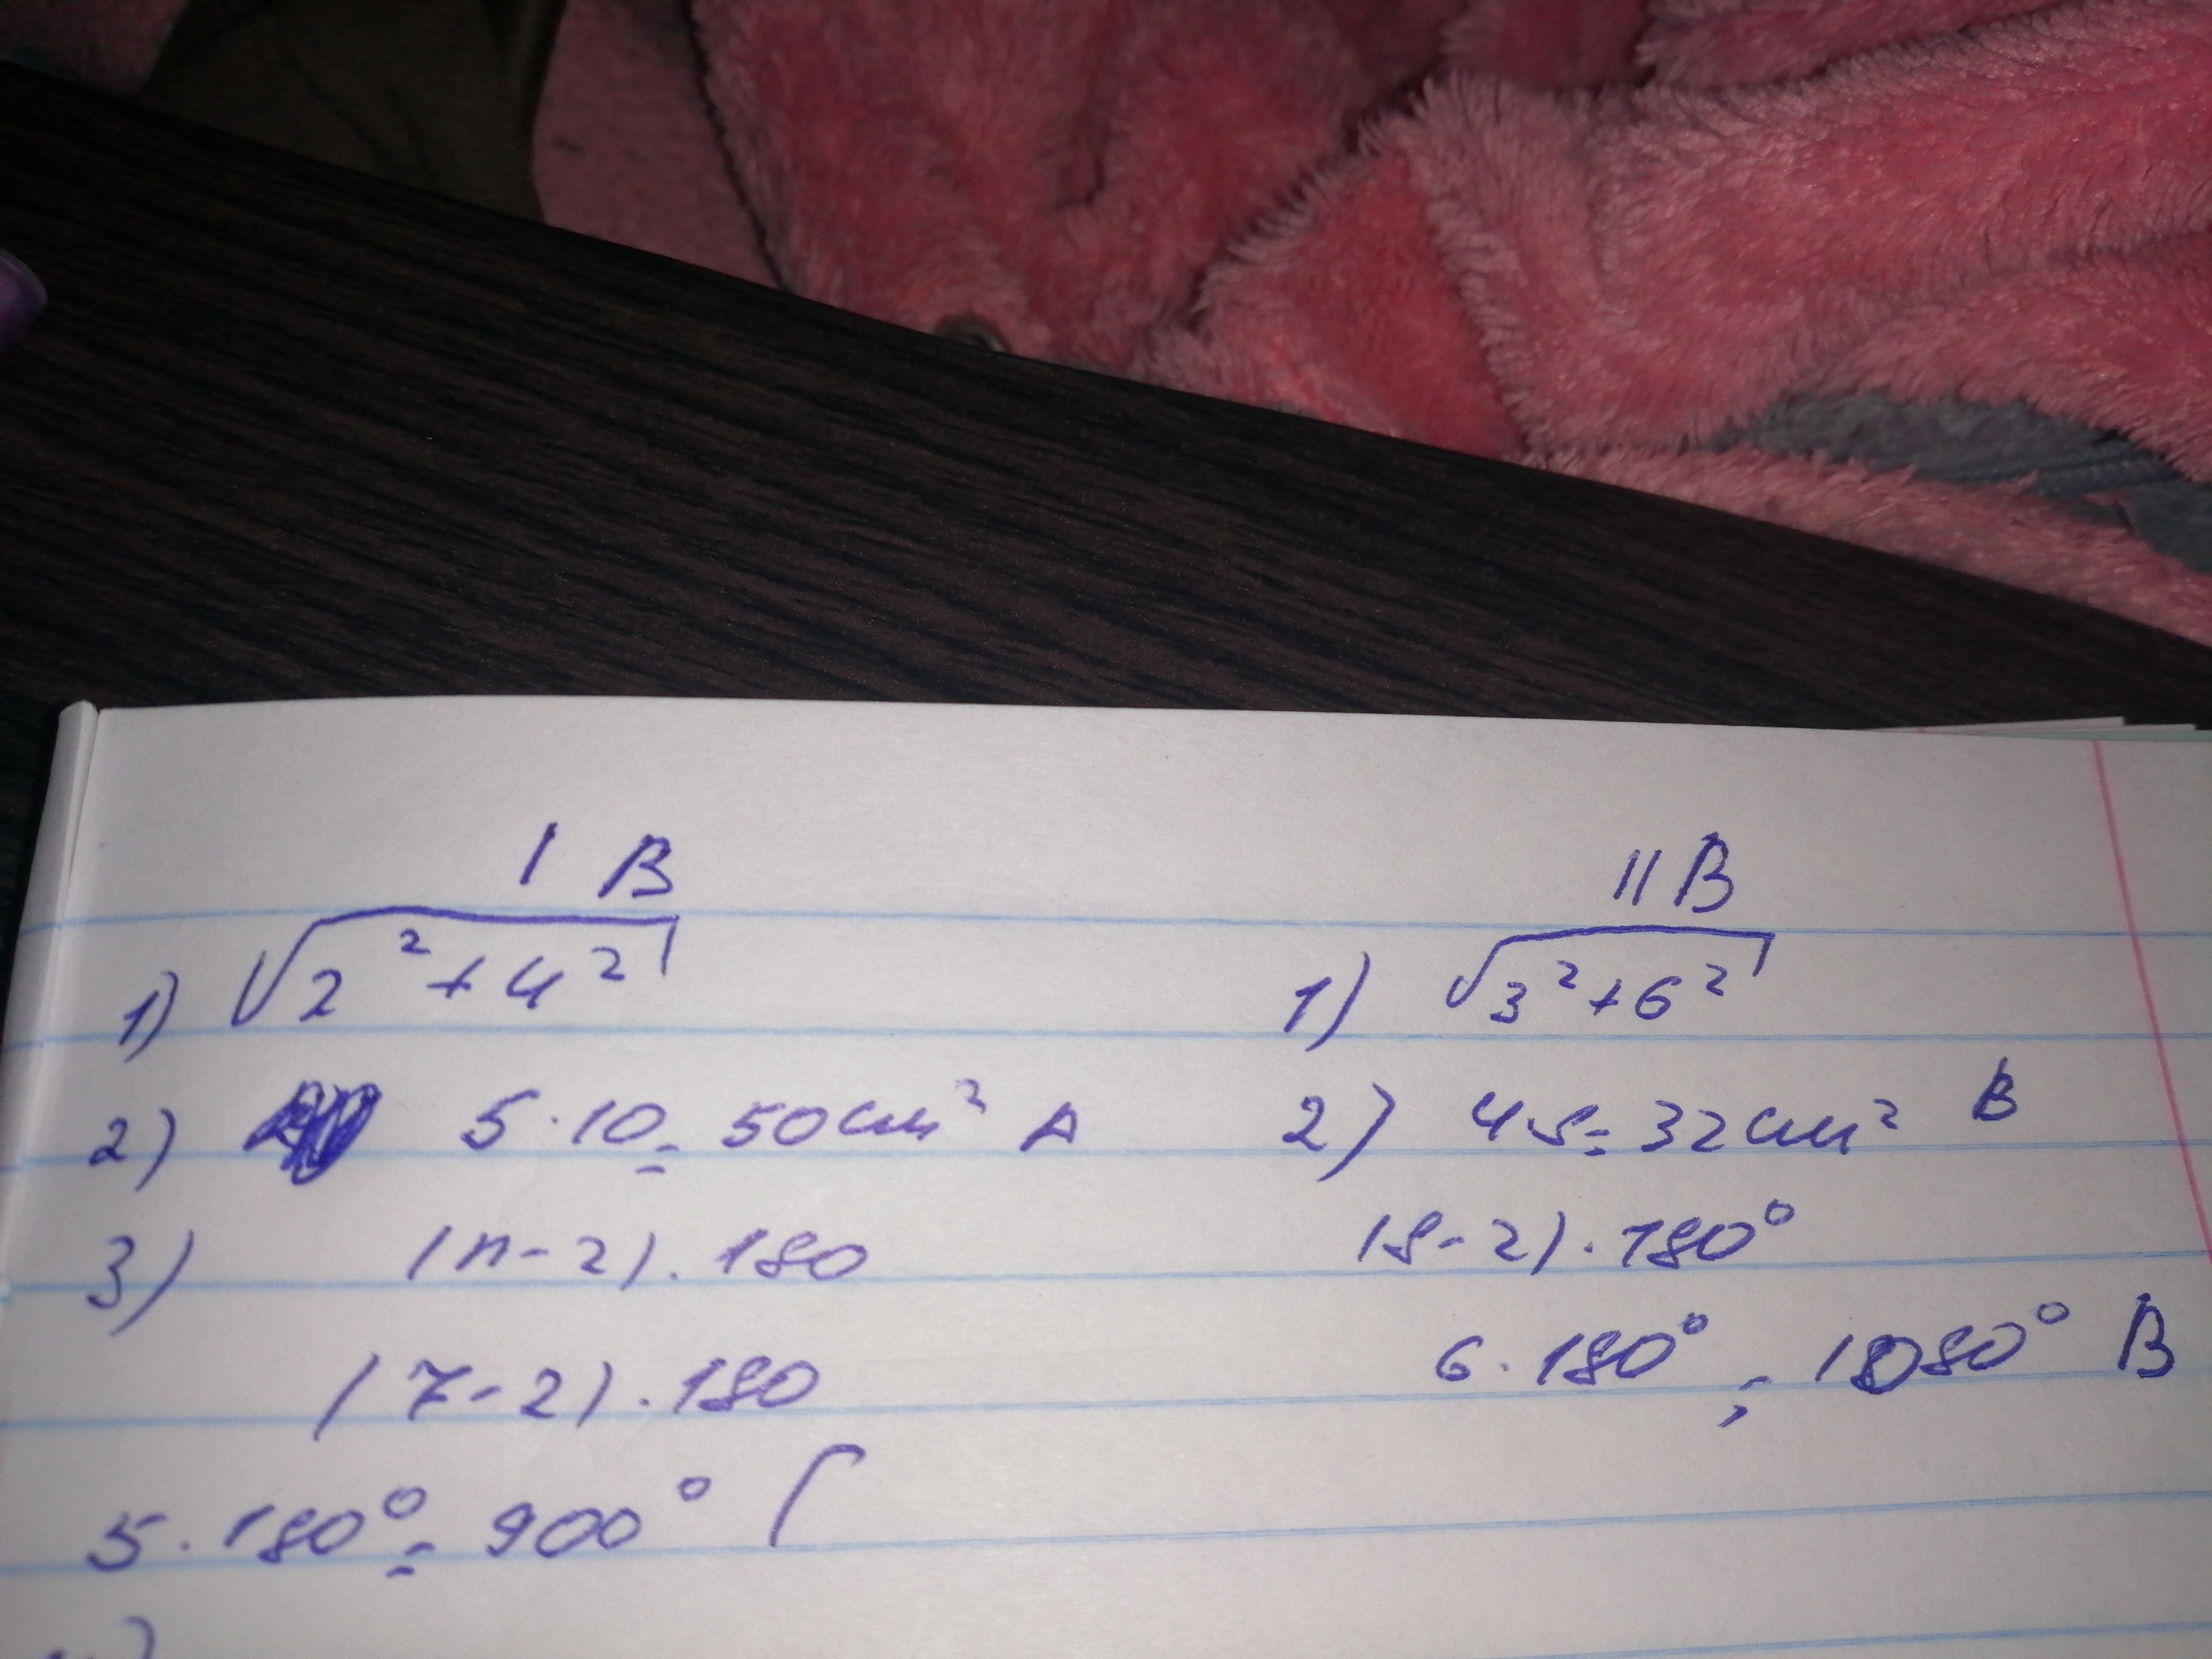 I В
1) √2²+4²
2) 5·10= 50см² А
3) (n-2)·180
(7-2)·180
5·180°= 900° Г
II В
1) √3²+6²
2) 4·8= 32см² В
(8-2)·180°
6·180° = 1080° В